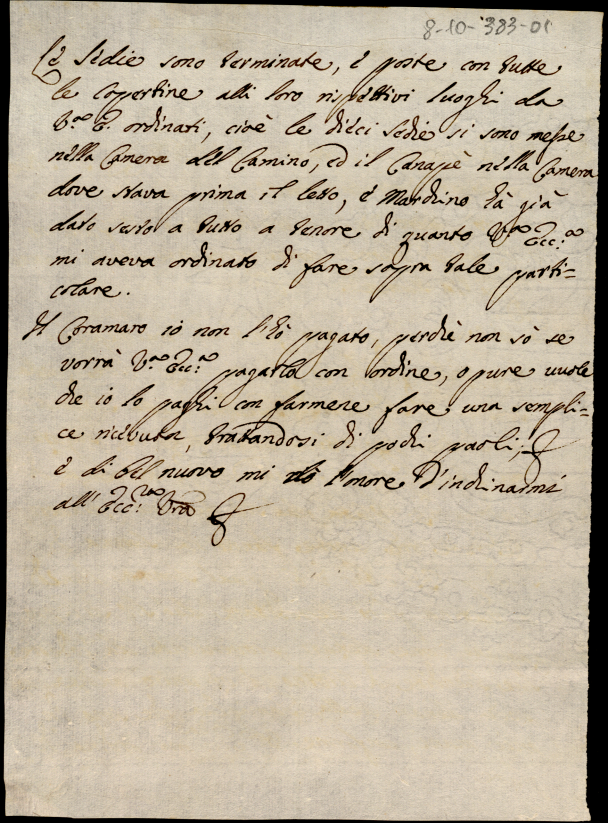 8-10-383-01
Le Sedie sono terminate, è poste con tutte
le copertine alli loro rispettivi luoghi da
V.ra E. ordinati, cioè le dieci sedie si sono messe
nella Camera del Camino, ed il Canapè nella Camera
dove stava prima il letto, è Marchino hà già
dato sesto a tutto a tenore di quanto V.ra Ecc.za
mi aveva ordinato di fare sopra tale parti=
colare.
Il Coramaro io non l'hò pagato, perchè non sò se
vorrà V.ra Ecc.za pagarlo con ordine, o pure vuole
che io lo paghi con farmene fare una sempli=
ce ricevuta, trattandosi di pochi paoli;
è di bel nuovo mi dò l'onore d'inchinarmi
all'Ecc.za Vra